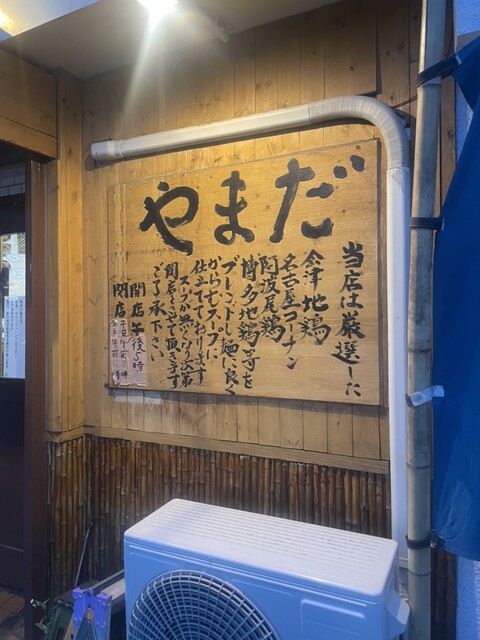 やまだ
当店は厳選した
会津地鶏
名古屋コーチン
阿波尾鶏
博多地鶏等を
ブレンドし麺に良く
からむスープに
仕立てております
スープが無くなり次第
閉店とさせて頂きます
ご了承下さい
開店 午後5時
閉店